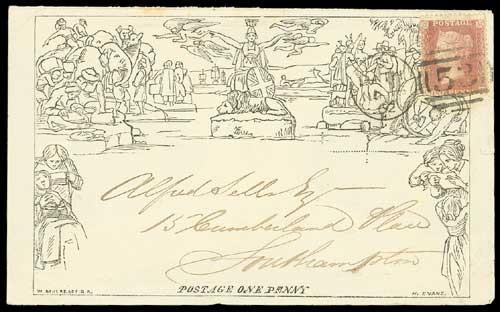 POSTAGE
53
Alfred Sells Esq
15 Cumberland Place
Southampton
W. MULREADY R.A.
POSTAGE ONE PENNY
H. EVANS.